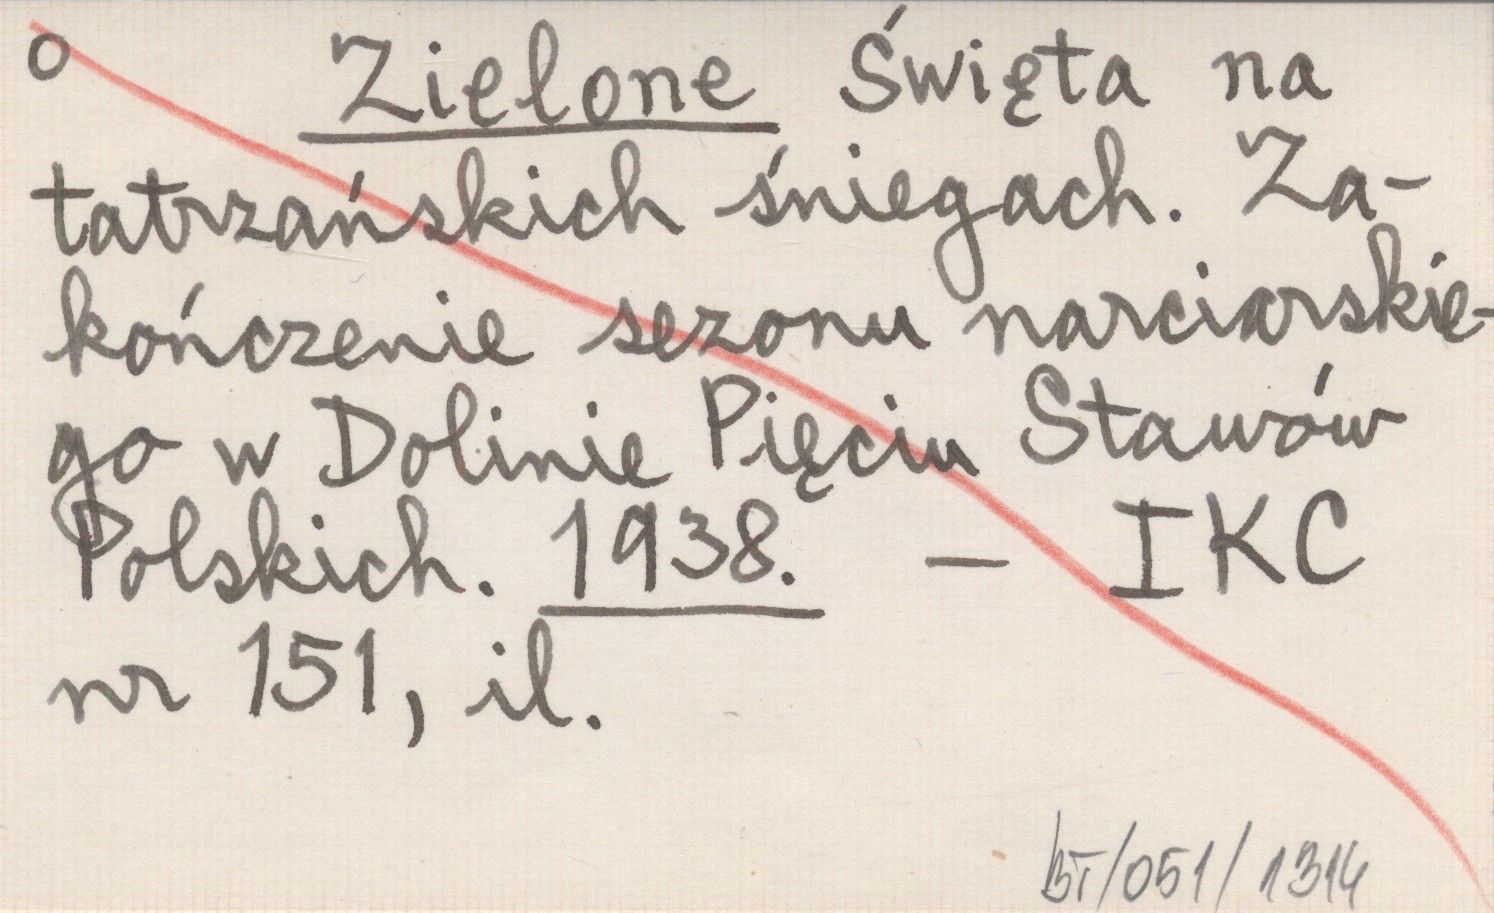 o Zielone Święta na
tatrzańskich śniegach. Za-
kończenie sezonu narciarskie-
go w Dolinie Pięciu Stawów
Polskich. 1938. — IKC
nr 151, il.
BT/051/1314